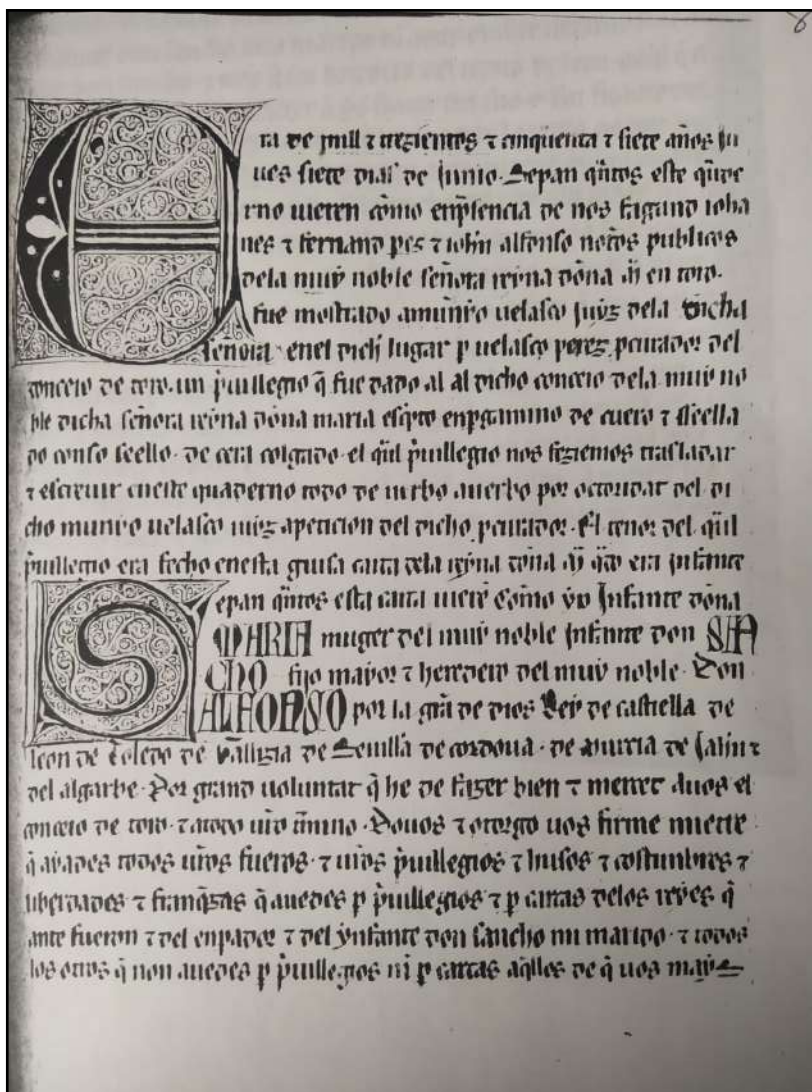 8
Era de mill τ trezientos τ cinquenta τ siete años Ju
ues siete dias de Junio. Sepan q̃ntos este q̃de
rno uieren cõmo enp̃sencia de nos fagund ioha
nes τ fernand pes τ iohñ alfonso not̃os publicos
dela muy noble señora reyna dõna m̃ en toro.
fue mostrado amunño uelasco juyz dela dicha
señora. enel dich lugar p uelasco perez pcurador del
conceio de toro. un p̃uillegio q̃ fue dado al al dicho conceio dela muy no
ble dicha señora reyna dõna maria esc̃pto enpgamino de cuero τ seella
do conso seello. de cera colgado. el q̃l p̃uillegio nos feziemos trasladar
τ escreuir eneste quaderno todo de uerbo auerbo por octoridat del di
cho munño uelasco iuyz apeticion del dicho pcurador. El tenor del q̃l
p̃uillegio era fecho enesta guisa carta dela reyna dõna m̃ q̃do era jnfante
Sepan q̃ntos esta carta uierẽ Cõmo yo Jnfante dõna
MARIA muger del muy noble Jnfante don SAN
CHO fijo mayor τ heredero del muy noble. Don
ALFONSO por la gr̃a de dios Rey de castiella de
leon de Toledo de Gallizia de Seuilla de cordoua. de Murcia de Jahn τ
del algarbe. Por grand uoluntat q̃ he de fazer bien τ merçet Auos el
conceio de toro. τ atodo ur̃o t̃mino. Douos τ otorgo uos firme miente
q̃ ayades todos ur̃os fueros. τ ur̃os p̃uillegios τ husos τ costunbres τ
libertades τ franq̃zas q̃ auedes p p̃uillegios τ p cartas delos reyes q̃
ante fueron τ del enpador τ del ynfante don sancho mi marido. τ todos
los otros q̃ non auedes p p̃uillegios nĩ p cartas aq̃llos de q̃ uos mays